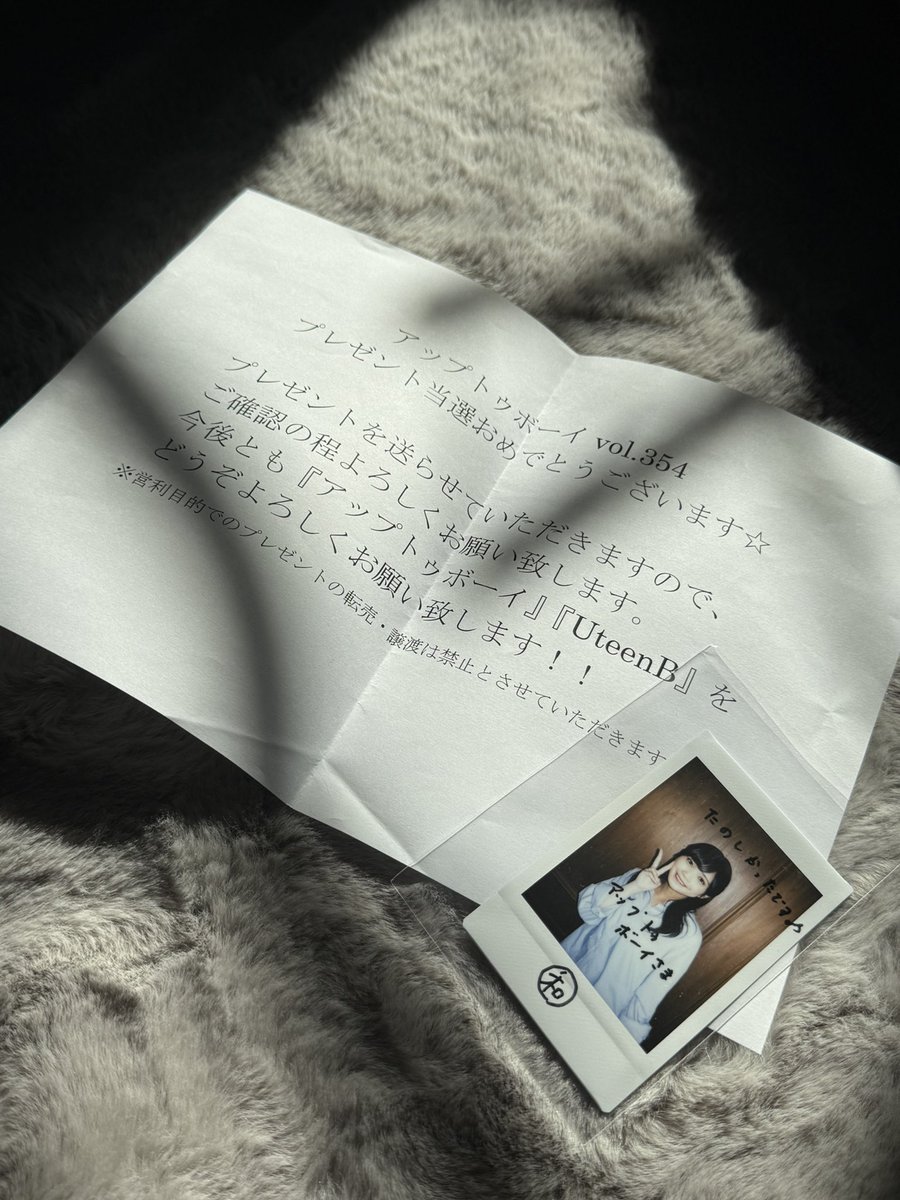 アップトゥボーイ vol.354
プレゼント当選おめでとうございます☆
プレゼントを送らせていただきますので、
ご確認の程よろしくお願い致します。
今後とも『アップトゥボーイ』『UteenB』を
どうぞよろしくお願い致します！！
※営利目的でのプレゼントの転売・譲渡は禁止とさせていただきます
たのしかったですね
アップトゥ
ボーイさま
和